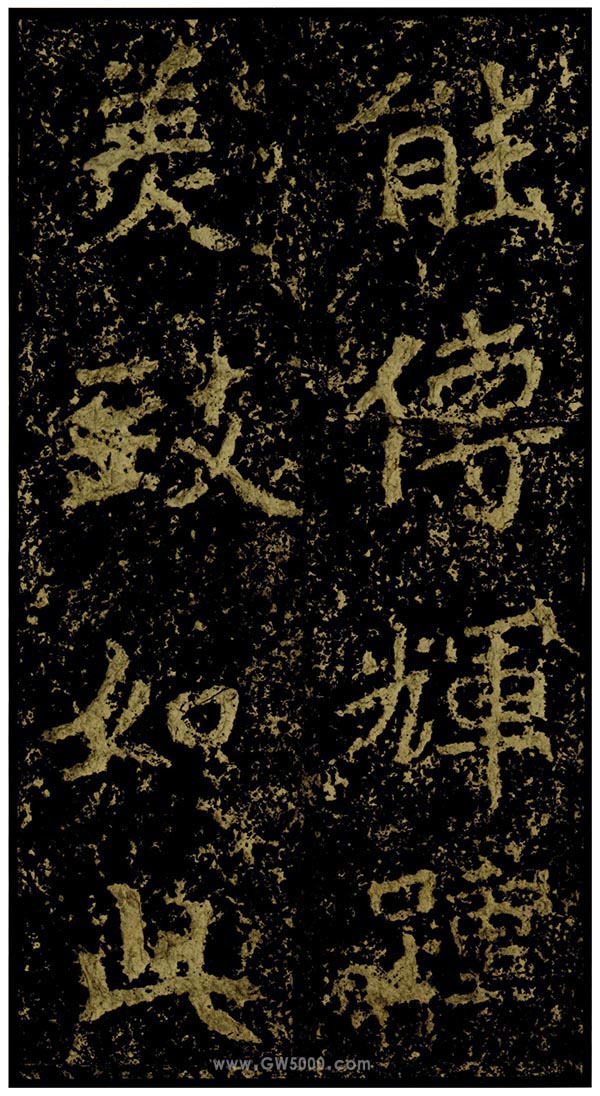 能傳輝踵
美致如此
www.GW5000.com